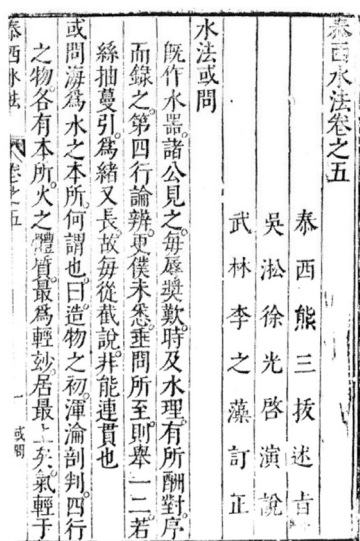 泰西水法卷之五
泰西熊三拔述旨
吳淞徐光啓演說
武林李之藻訂正
水法或問
旣作水器。諸公見之。每辱奬歎。時及水理。有所酬對。序
而錄之。第四行論辨。更僕未悉。垂問所至。則舉一二。若
絲抽蔓引。爲緒又長。故每從截說。非能連貫也
或問海爲水之本所。何謂也。曰。造物之初。渾淪剖判。四行
之物。各有本所。火之體質。最爲輕妙。居最上。氣輕于
泰西水法
卷之五
一
或問